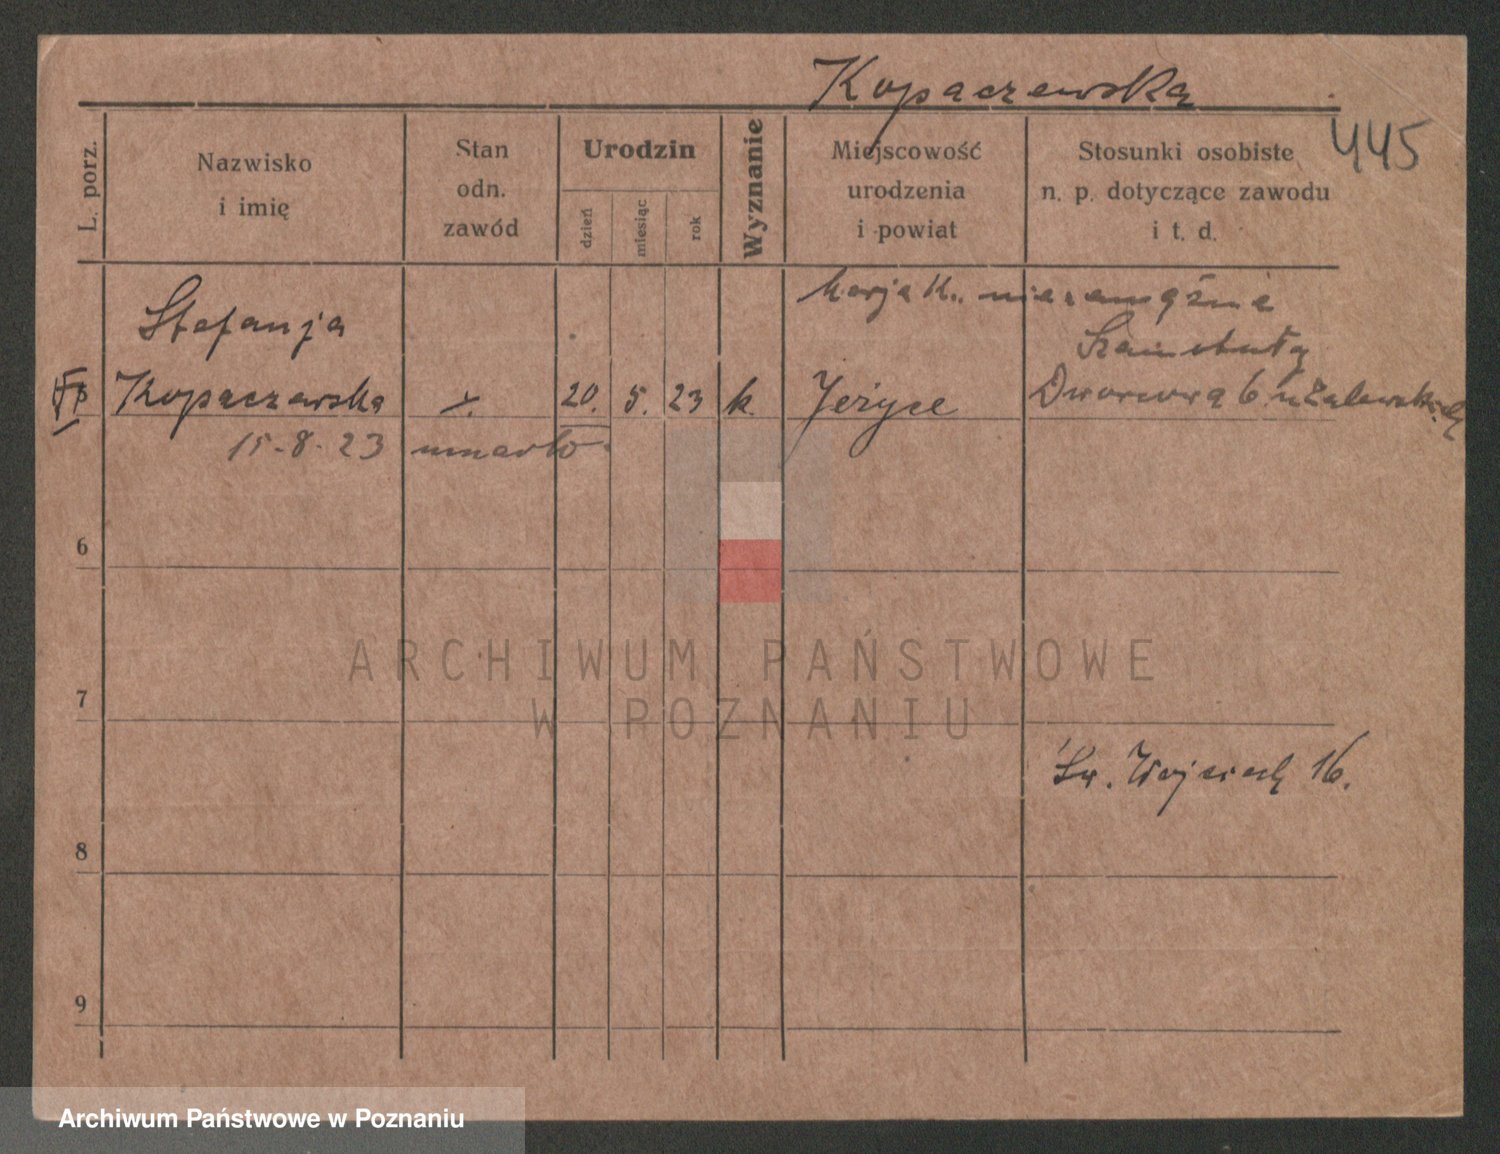 Kopaczewska
445
L. porz.
Nazwisko
i imię
Stan
odn.
zawód
Urodzin
dzień
miesiąc
rok
Wyznanie
Miejscowość
urodzenia
i powiat
Stosunki osobiste
n. p. dotyczące zawodu
i t. d.
Marja K. niezamężna
Stefanja
Szamotuły
Kopaczewska
20. 5. 23 k. Jeżyce
Dworcowa 6
15-8-23 umarło.
6
7
8
9
Św. Wojciech 16.
ARCHIWUM PAŃSTWOWE
W POZNANIU
Archiwum Państwowe w Poznaniu